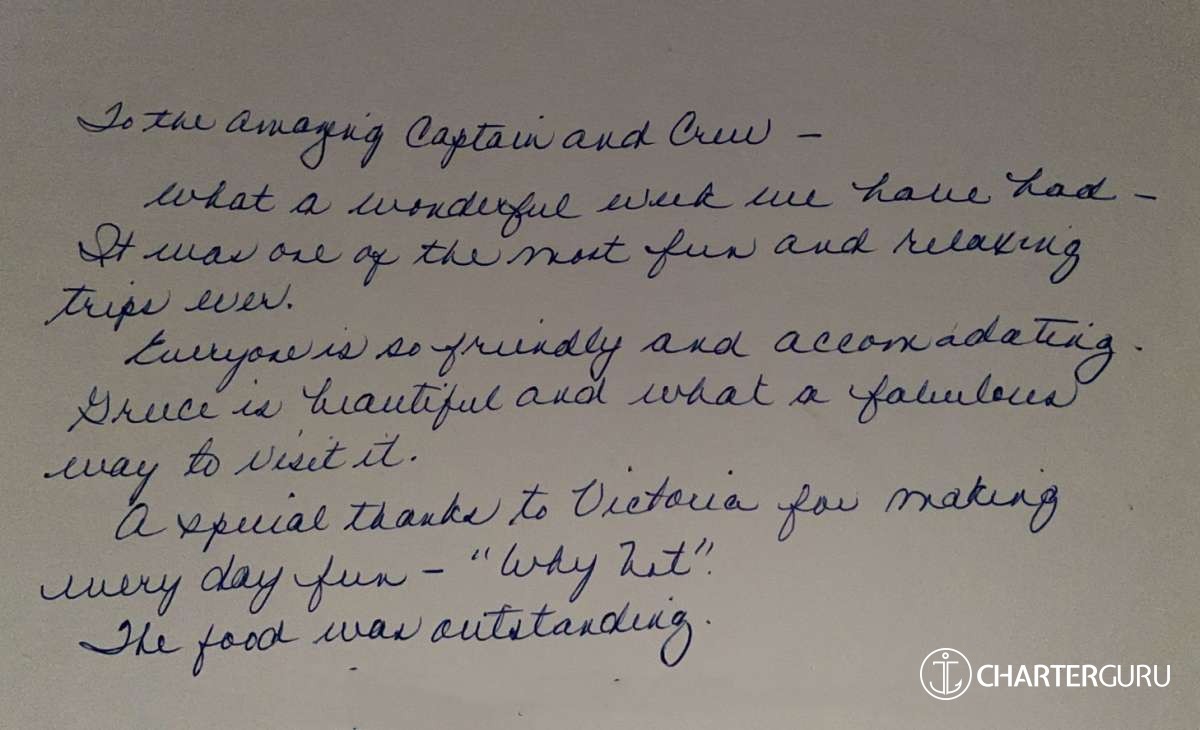 To the amazing Captain and Crew –
What a wonderful week we have had –
It was one of the most fun and relaxing
trips ever.
Everyone is so friendly and accomadating.
Greece is beautiful and what a fabulous
way to visit it.
A special thanks to Victoria for making
every day fun – "Why Not".
The food was outstanding.
CHARTERGURU